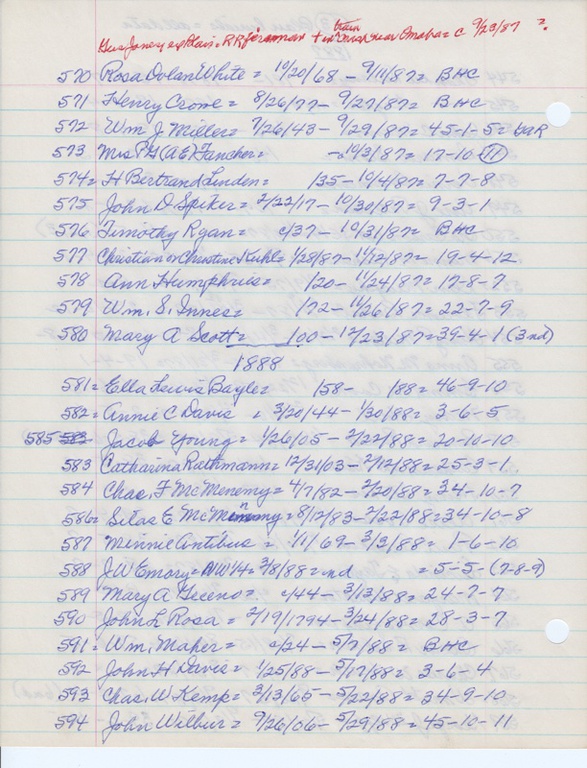 train
RR fireman + in near Omaha = c 9/23/87 ?
570 Rosa Dolan White = 10/20/68 - 9/11/87 = BHC
571 Henry Crowe = 8/26/77 - 9/27/87 = BHC
572 Wm J. Miller = 7/26/43 - 9/29/87 = 45-1-5 = GAR
573 Mrs P.H (A E) Fancher = - 10/3/87 = 17-10 (11)
574 = H Bertrand Linden = 135 - 10/4/87 = 7-7-8
575 John D Spiker = 2/22/17 - 10/30/87 = 9-3-1
576 Timothy Ryan = c/37 - 10/31/87 = BHC
577 Christian or Christine Kuhl = 1/28/87 - 11/12/87 = 19-4-12
578 Ann Humphries = 120 - 11/24/87 = 17-8-7
579 Wm. S. Innes = 172 - 11/26/87 = 22-7-9
580 Mary A Scott = 100 - 12/23/87 = 39-4-1 (3rd)
1888
581 = Ella Lewis Bayle = 158 - 188 = 46-9-10
582 = Annie C Davis = 3/20/44 - 1/30/88 = 3-6-5
585 583 Jacob Young = 1/26/05 - 2/22/88 = 20-10-10
583 Catharina Rathmann = 12/31/03 - 2/12/88 = 25-3-1
584 Chas. F McMenemy = 4/7/82 - 2/20/88 = 34-10-7
586 = Silas E McMenemy = 8/12/83 - 2/22/88 = 34-10-8
587 Minnie Antibus = 1/11/69 - 3/3/88 = 1-6-10
588 J.W Emory = NW 1/4 = 3/8/88 = nd = 5-5-(7-8-9)
589 Mary A Greeno = c/44 - 3/13/88 = 24-7-7
590 John L Rosa = 2/19/1794 - 3/24/88 = 28-3-7
591 = Wm. Maher = c/24 - 5/7/88 = BHC
592 John H Davis = 1/25/88 - 5/17/88 = 3-6-4
593 Chas. W Kemp = 3/13/65 - 5/22/88 = 34-9-10
594 John Wilbur = 9/26/06 - 5/29/88 = 45-10-11